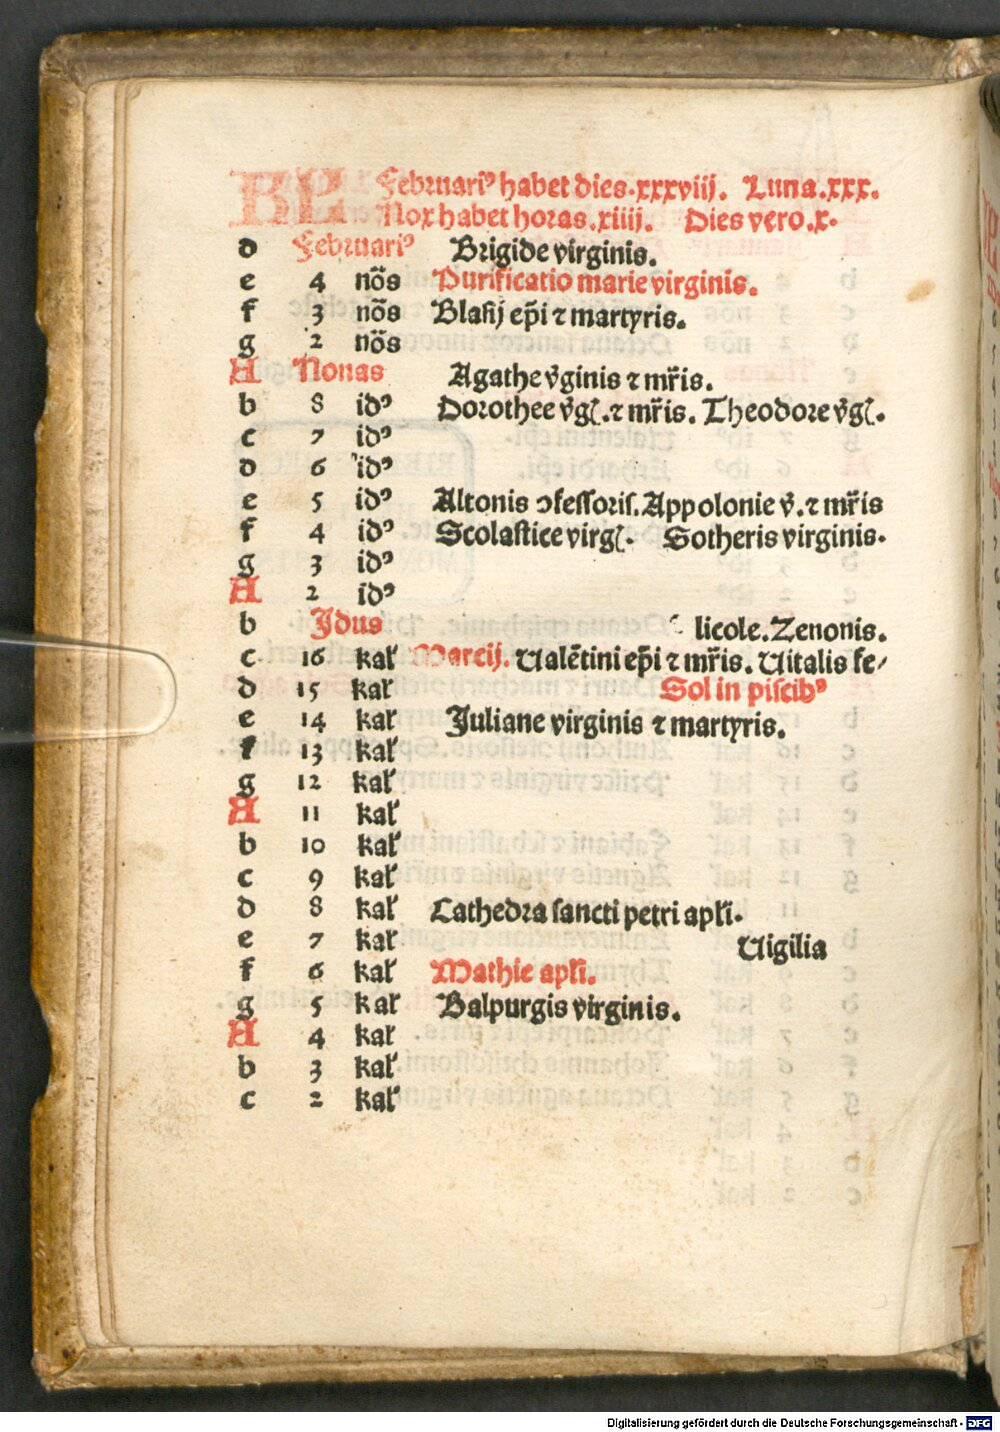 KL Februariꝰ habet dies.xxxviij. Luna.xxx.
Nox habet horas.xiiij. Dies vero.x.
d Februariꝰ Brigide virginis.
e 4 nōs Purificatio marie virginis.
f 3 nōs Blasij ep̄i ⁊ martyris.
g 2 nōs
A Nonas Agathe v̄ginis ⁊ mr̄is.
b 8 idꝰ Dorothee v̄gĩ.⁊ mr̄is. Theodore v̄gĩ.
c 7 idꝰ
d 6 idꝰ
e 5 idꝰ Altonis ↄfessoris. Appolonie v̄.⁊ mr̄is
f 4 idꝰ Scolastice virgĩ. Sotheris virginis.
g 3 idꝰ
A 2 idꝰ
b Idus licole. Zenonis.
c 16 kal' Marcij. Ualētini ep̄i ⁊ mr̄is. Uitalis fe/
d 15 kal' Sol in piscibꝰ
e 14 kal' Juliane virginis ⁊ martyris.
f 13 kal'
g 12 kal'
A 11 kal'
b 10 kal'
c 9 kal'
d 8 kal' Cathedra sancti petri apl'i.
e 7 kal' Uigilia
f 6 kal' Mathie apl'i.
g 5 kal' Balpurgis virginis.
A 4 kal'
b 3 kal'
c 2 kal'
Digitalisierung gefördert durch die Deutsche Forschungsgemeinschaft - DFG